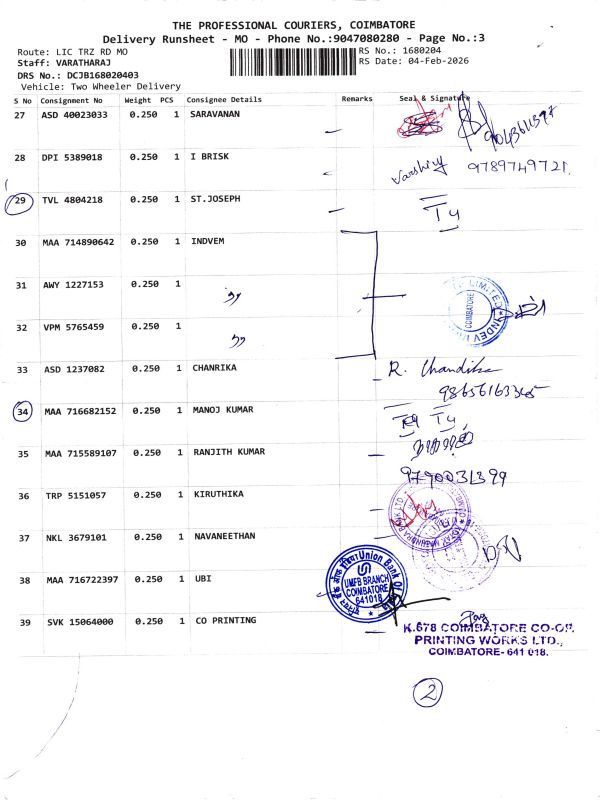 THE PROFESSIONAL COURIERS, COIMBATORE
Delivery Runsheet - MO - Phone No.:9047080280 - Page No.:3
Route: LIC TRZ RD MO
RS No.: 1680204
Staff: VARATHARAJ
RS Date: 04-Feb-2026
DRS No.: DCJB168020403
Vehicle: Two Wheeler Delivery
S No Consignment No Weight PCS Consignee Details Remarks Seal & Signature
27 ASD 40023033 0.250 1 SARAVANAN
28 DPI 5389018 0.250 1 I BRISK
Varshiny 9789749721
29 TVL 4804218 0.250 1 ST.JOSEPH
T4
30 MAA 714890642 0.250 1 INDVEM
31 AWY 1227153 0.250 1 ,,
COIMBATORE
32 VPM 5765459 0.250 1 ,,
33 ASD 1237082 0.250 1 CHANRIKA R. Chandika
34 MAA 716682152 0.250 1 MANOJ KUMAR
T4
35 MAA 715589107 0.250 1 RANJITH KUMAR
9790031399
36 TRP 5151057 0.250 1 KIRUTHIKA
37 NKL 3679101 0.250 1 NAVANEETHAN
38 MAA 716722397 0.250 1 UBI
Union Bank Of
UMFB BRANCH
COIMBATORE
641018
39 SVK 15064000 0.250 1 CO PRINTING
K.678 COIMBATORE CO-OP.
PRINTING WORKS LTD.,
COIMBATORE- 641 018.
2